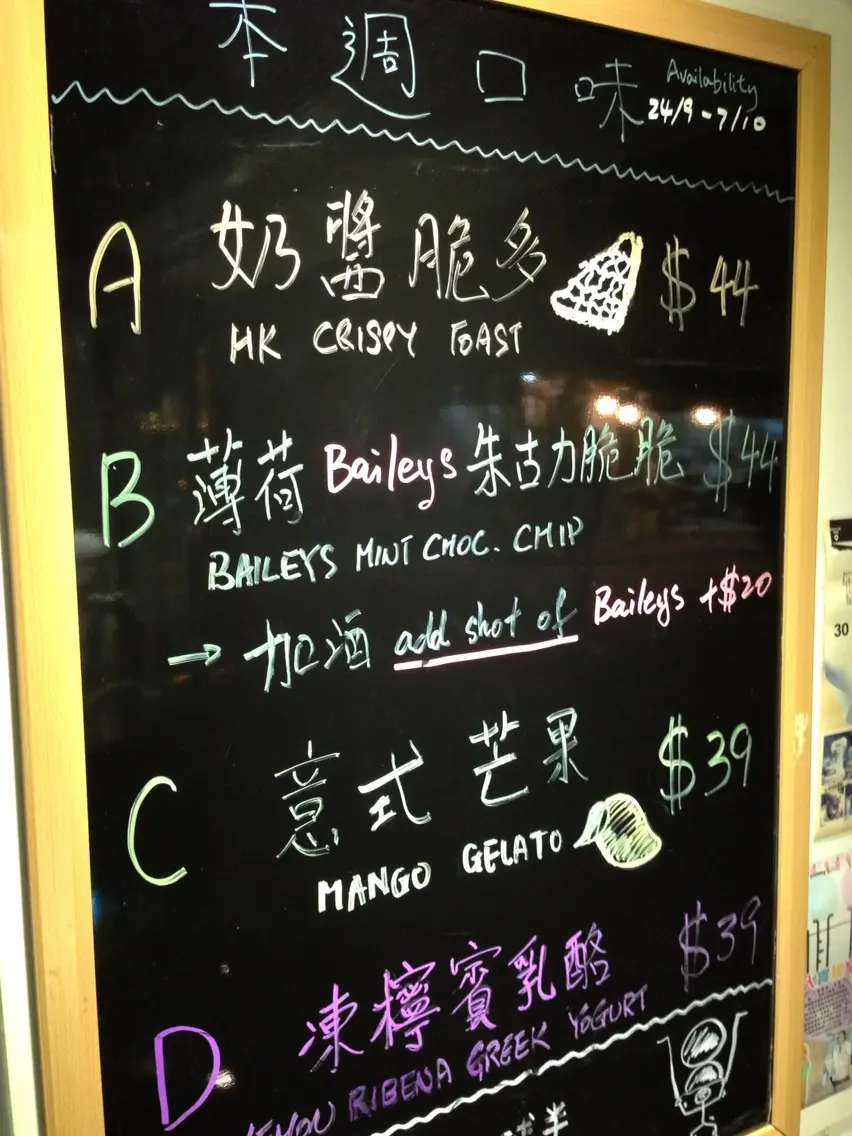 本週口味 Availability
24/9 - 7/10
A 奶醬脆多 $44
HK CRISPY TOAST
B 薄荷 Baileys 朱古力脆脆 $44
BAILEYS MINT CHOC. CHIP
→ 加酒 add shot of Baileys +$20
C 意式芒果 $39
MANGO GELATO
D 凍檸賓乳酪 $39
LEMON RIBENA GREEK YOGURT
30